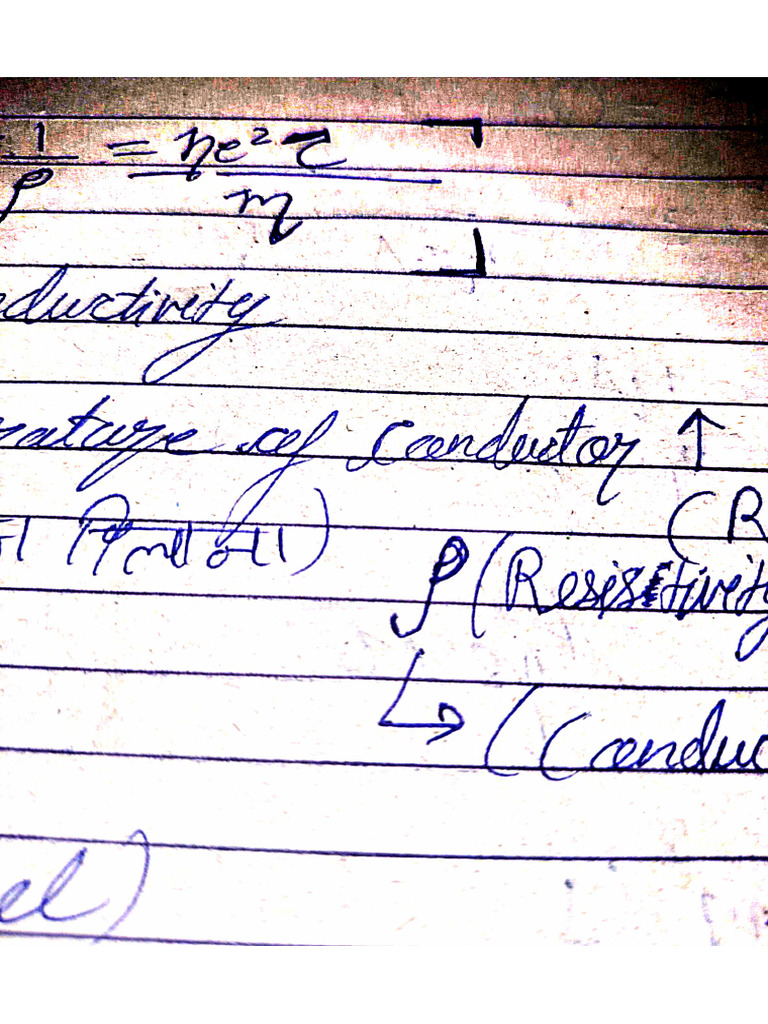 1/ρ = ne²τ/m
ductivity
rature of conductor ↑
(R
ρ (Resistivity
↳ (Conduc
el)